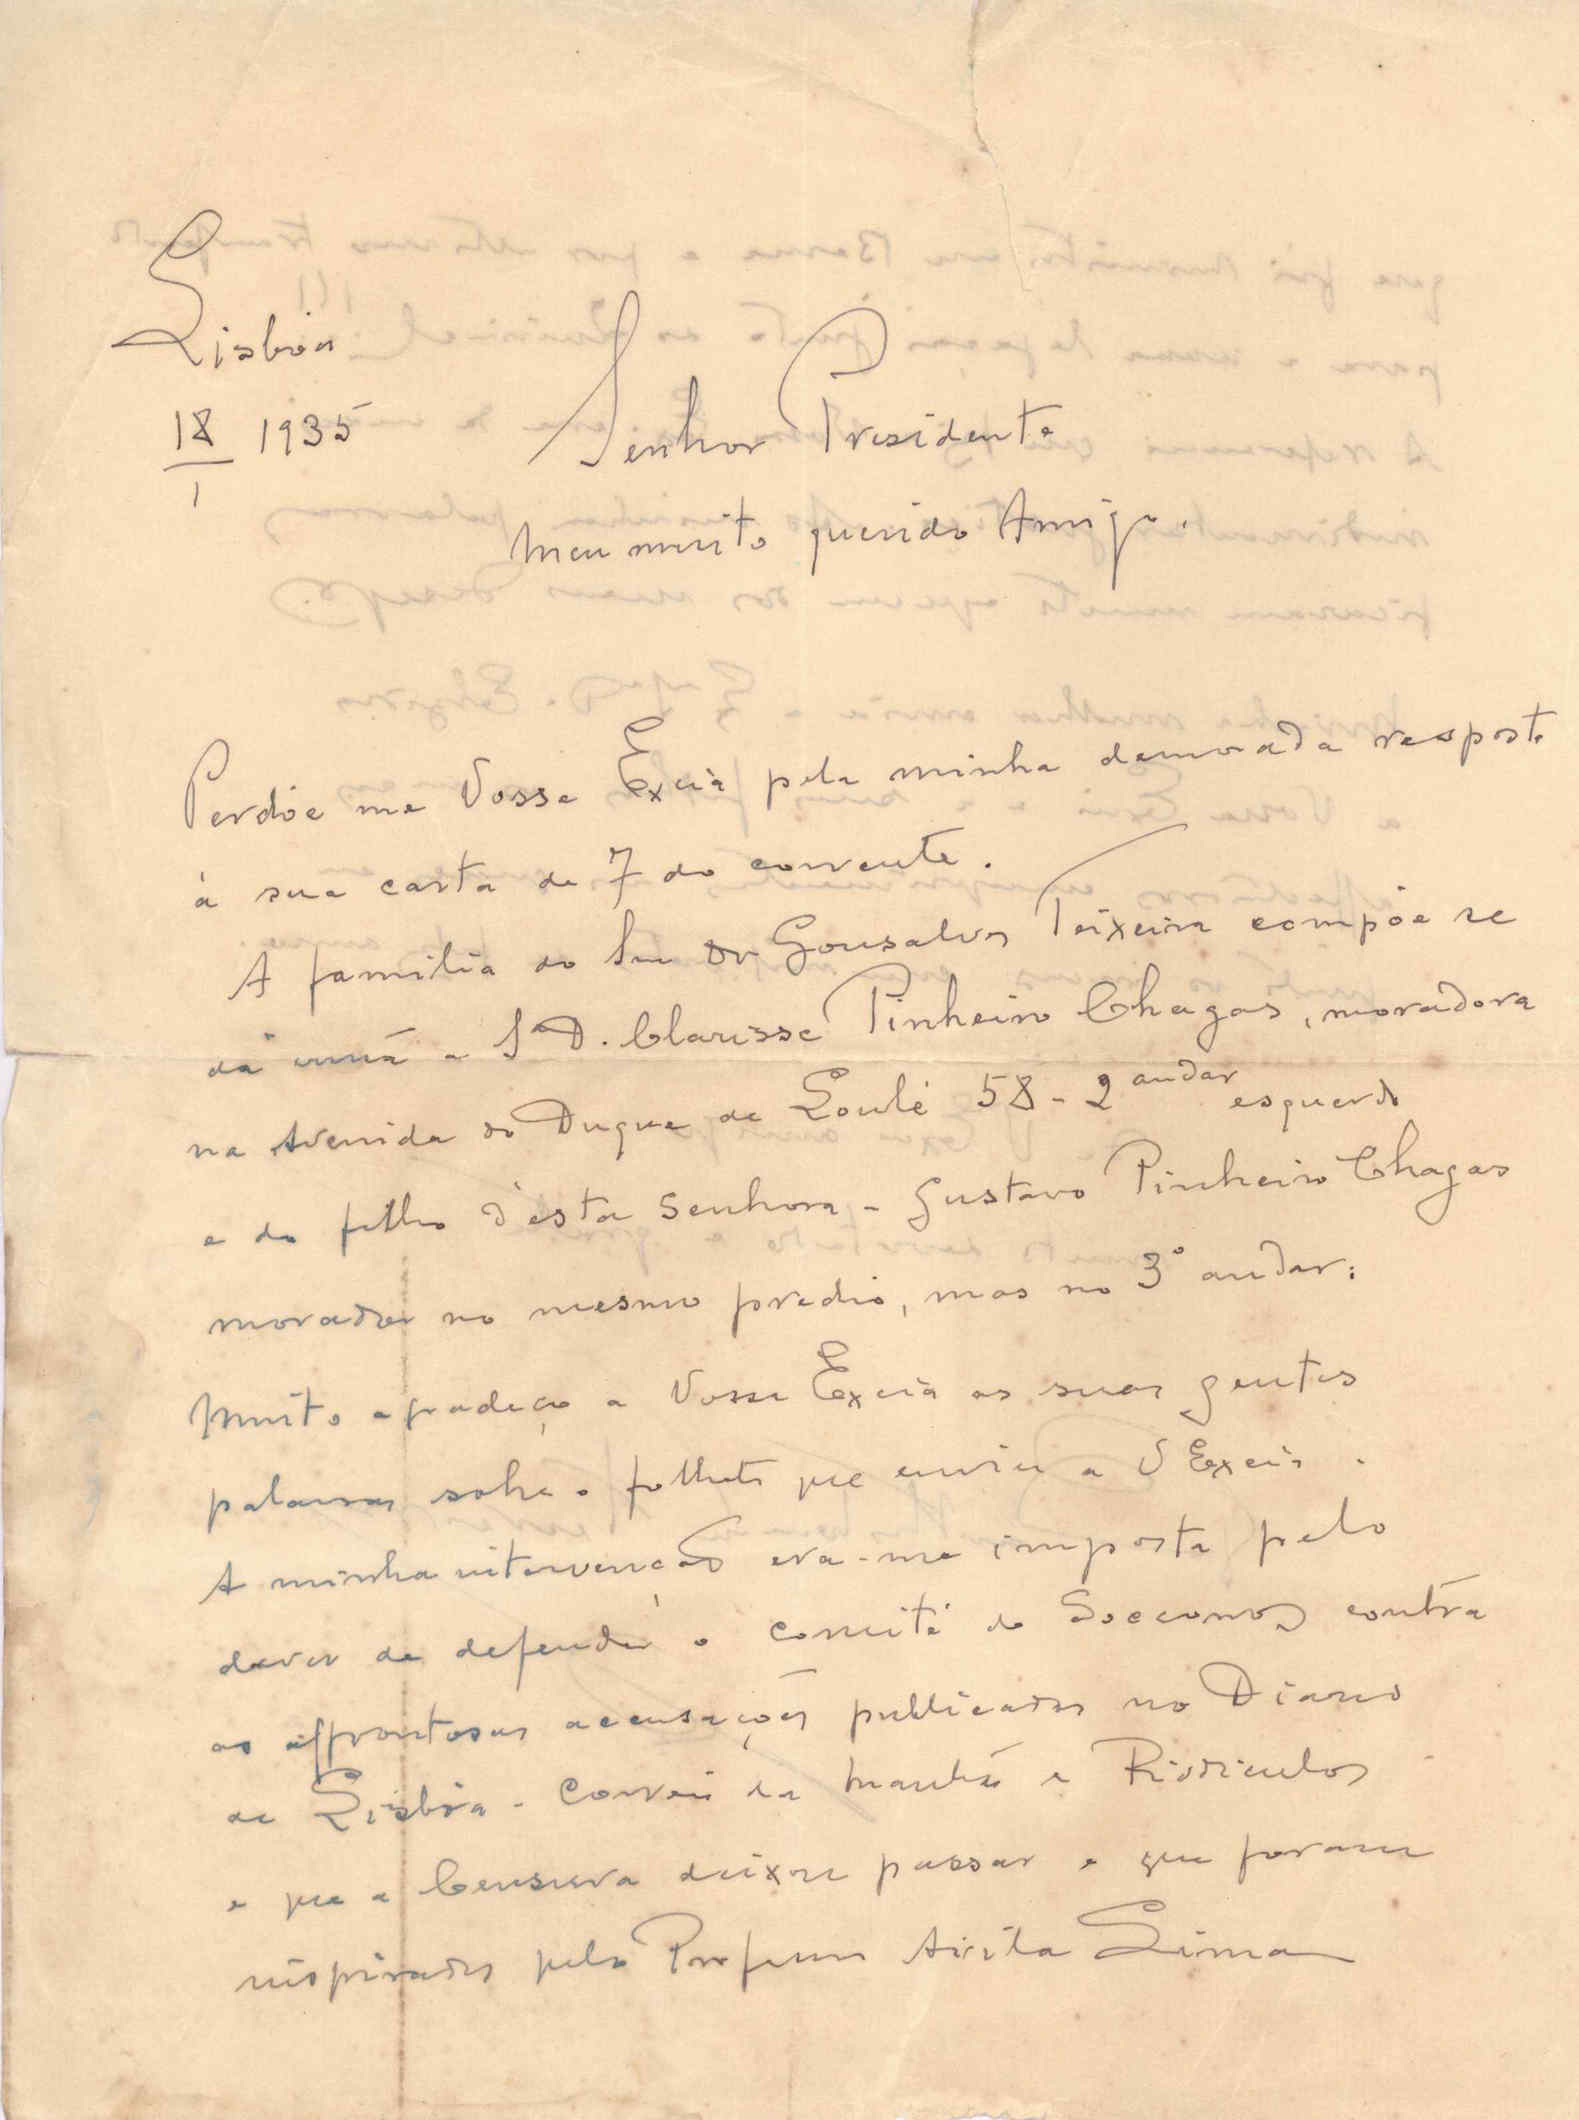 Lisbôa
18/1 1935
Senhor Presidente
Meu muito querido Amigo.
Perdóe me Vossa Excia pela minha demorada resposta
á sua carta de 7 do corrente.
A familia do Snr Dr Gonsalves Teixeira compõe se
da irmã a Sª D. Clarisse Pinheiro Chagas, moradora
na Avenida do Duque de Loulé 58 - 2 andar esquerdo
e do filho d'esta Senhora - Gustavo Pinheiro Chagas
morador no mesmo predio, mas no 3º andar.
Muito agradeço a Vossa Excia as suas gentis
palavras sobre o folheto que enviei a V Excia.
A minha intervenção era-me imposta pelo
dever de defender o comité de Soccorros contra
as affrontosas accusações publicadas no Diario
de Lisbôa - Correio da Manhã e Ridiculos
e que a Censura deixou passar e que foram
inspirados pelo Professor Avila Lima